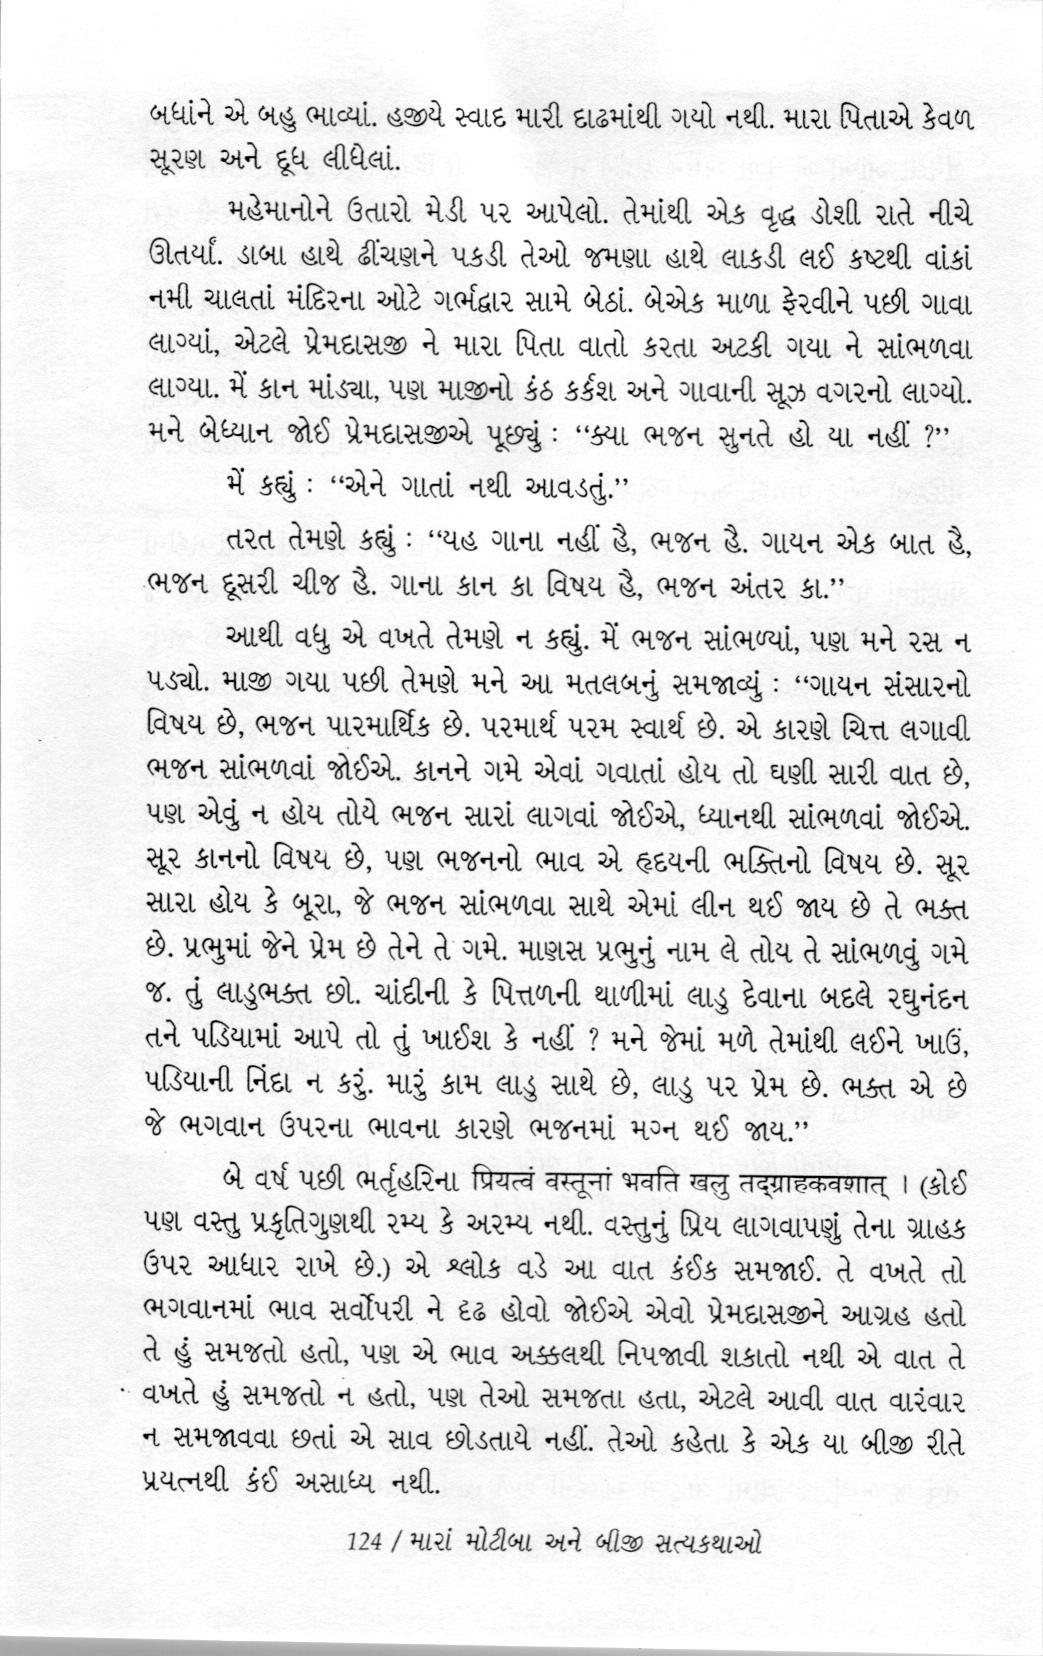 બધાંને એ બહુ ભાવ્યાં. હજીયે સ્વાદ મારી દાઢમાંથી ગયો નથી. મારા પિતાએ કેવળ
સૂરણ અને દૂધ લીધેલાં.
મહેમાનોને ઉતારો મેડી પર આપેલો. તેમાંથી એક વૃદ્ધ ડોશી રાતે નીચે
ઊતર્યાં. ડાબા હાથે ઢીંચણને પકડી તેઓ જમણા હાથે લાકડી લઈ કષ્ટથી વાંકાં
નમી ચાલતાં મંદિરના ઓટે ગર્ભદ્વાર સામે બેઠાં. બેએક માળા ફેરવીને પછી ગાવા
લાગ્યાં, એટલે પ્રેમદાસજી ને મારા પિતા વાતો કરતા અટકી ગયા ને સાંભળવા
લાગ્યા. મેં કાન માંડ્યા, પણ માજીનો કંઠ કર્કશ અને ગાવાની સૂઝ વગરનો લાગ્યો.
મને બેધ્યાન જોઈ પ્રેમદાસજીએ પૂછ્યું : “ક્યા ભજન સુનતે હો યા નહીં ?”
મેં કહ્યું : “એને ગાતાં નથી આવડતું.”
તરત તેમણે કહ્યું : “યહ ગાના નહીં હૈ, ભજન હૈ. ગાયન એક બાત હૈ,
ભજન દૂસરી ચીજ હૈ. ગાના કાન કા વિષય હૈ, ભજન અંતર કા.”
આથી વધુ એ વખતે તેમણે ન કહ્યું. મેં ભજન સાંભળ્યાં, પણ મને રસ ન
પડ્યો. માજી ગયા પછી તેમણે મને આ મતલબનું સમજાવ્યું : “ગાયન સંસારનો
વિષય છે, ભજન પારમાર્થિક છે. પરમાર્થ પરમ સ્વાર્થ છે. એ કારણે ચિત્ત લગાવી
ભજન સાંભળવાં જોઈએ. કાનને ગમે એવાં ગવાતાં હોય તો ઘણી સારી વાત છે,
પણ એવું ન હોય તોયે ભજન સારાં લાગવાં જોઈએ, ધ્યાનથી સાંભળવાં જોઈએ.
સૂર કાનનો વિષય છે, પણ ભજનનો ભાવ એ હૃદયની ભક્તિનો વિષય છે. સૂર
સારા હોય કે બૂરા, જે ભજન સાંભળવા સાથે એમાં લીન થઈ જાય છે તે ભક્ત
છે. પ્રભુમાં જેને પ્રેમ છે તેને તે ગમે. માણસ પ્રભુનું નામ લે તોય તે સાંભળવું ગમે
જ. તું લાડુભક્ત છો. ચાંદીની કે પિત્તળની થાળીમાં લાડુ દેવાના બદલે રઘુનંદન
તને પડિયામાં આપે તો તું ખાઈશ કે નહીં ? મને જેમાં મળે તેમાંથી લઈને ખાઉં,
પડિયાની નિંદા ન કરું. મારું કામ લાડુ સાથે છે, લાડુ પર પ્રેમ છે. ભક્ત એ છે
જે ભગવાન ઉપરના ભાવના કારણે ભજનમાં મગ્ન થઈ જાય.”
બે વર્ષ પછી ભર્તૃહરિના प्रियत्वं वस्तूनां भवति खलु तद्ग्राहकवशात् । (કોઈ
પણ વસ્તુ પ્રકૃતિગુણથી રમ્ય કે અરમ્ય નથી. વસ્તુનું પ્રિય લાગવાપણું તેના ગ્રાહક
ઉપર આધાર રાખે છે.) એ શ્લોક વડે આ વાત કંઈક સમજાઈ. તે વખતે તો
ભગવાનમાં ભાવ સર્વોપરી ને દૃઢ હોવો જોઈએ એવો પ્રેમદાસજીને આગ્રહ હતો
તે હું સમજતો હતો, પણ એ ભાવ અક્કલથી નિપજાવી શકાતો નથી એ વાત તે
વખતે હું સમજતો ન હતો, પણ તેઓ સમજતા હતા, એટલે આવી વાત વારંવાર
ન સમજાવવા છતાં એ સાવ છોડતાયે નહીં. તેઓ કહેતા કે એક યા બીજી રીતે
પ્રયત્નથી કંઈ અસાધ્ય નથી.
124 / મારાં મોટીબા અને બીજી સત્યકથાઓ